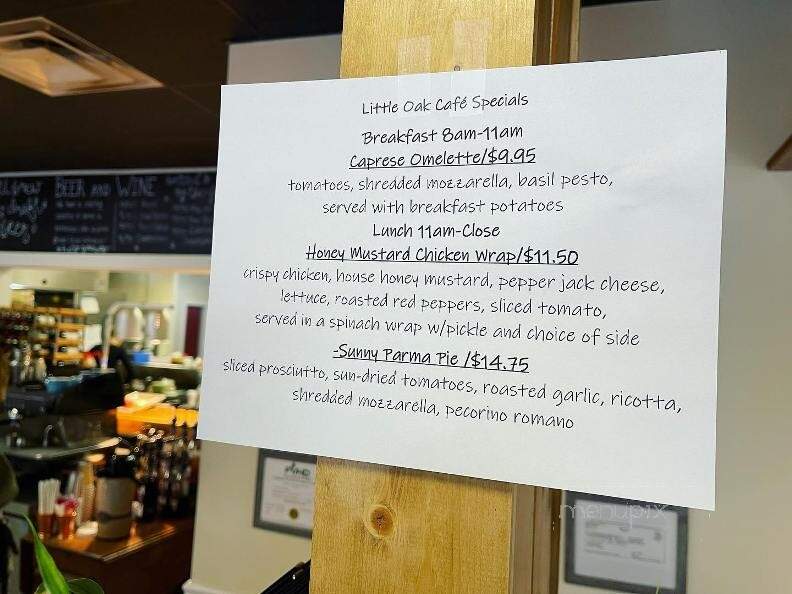 Little Oak Café Specials
Breakfast 8am-11am
Caprese Omelette/$9.95
tomatoes, shredded mozzarella, basil pesto,
served with breakfast potatoes
Lunch 11am-Close
Honey Mustard Chicken Wrap/$11.50
crispy chicken, house honey mustard, pepper jack cheese,
lettuce, roasted red peppers, sliced tomato,
served in a spinach wrap w/pickle and choice of side
-Sunny Parma Pie /$14.75
sliced prosciutto, sun-dried tomatoes, roasted garlic, ricotta,
shredded mozzarella, pecorino romano
BEER AND WINE
menupix